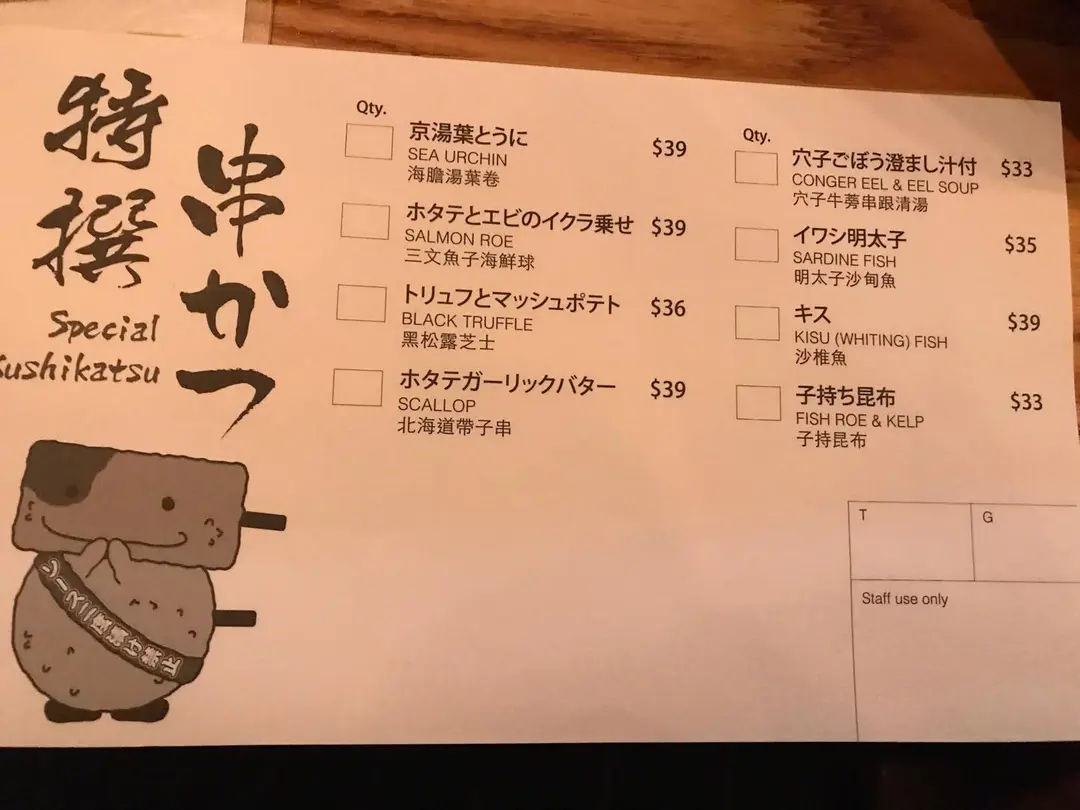 特撰
串かつ
Special
kushikatsu
Qty.
京湯葉とうに $39
SEA URCHIN
海膽湯葉卷
ホタテとエビのイクラ乗せ $39
SALMON ROE
三文魚子海鮮球
トリュフとマッシュポテト $36
BLACK TRUFFLE
黑松露芝士
ホタテガーリックバター $39
SCALLOP
北海道帶子串
Qty.
穴子ごぼう澄まし汁付 $33
CONGER EEL & EEL SOUP
穴子牛蒡串跟清湯
イワシ明太子 $35
SARDINE FISH
明太子沙甸魚
キス $39
KISU (WHITING) FISH
沙椎魚
子持ち昆布 $33
FISH ROE & KELP
子持昆布
T
G
Staff use only
ソース二度漬け禁止